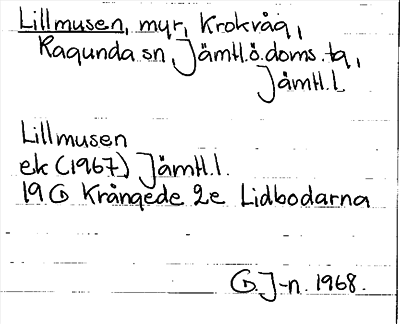 Lillmusen, myr, Krokvåg,
Ragunda sn Jämtl.ö.doms.tg,
Jämtl.l.
Lillmusen
ek (1967) Jämtl.l.
19 G Krångede 2e Lidbodarna
G. J-n. 1968.